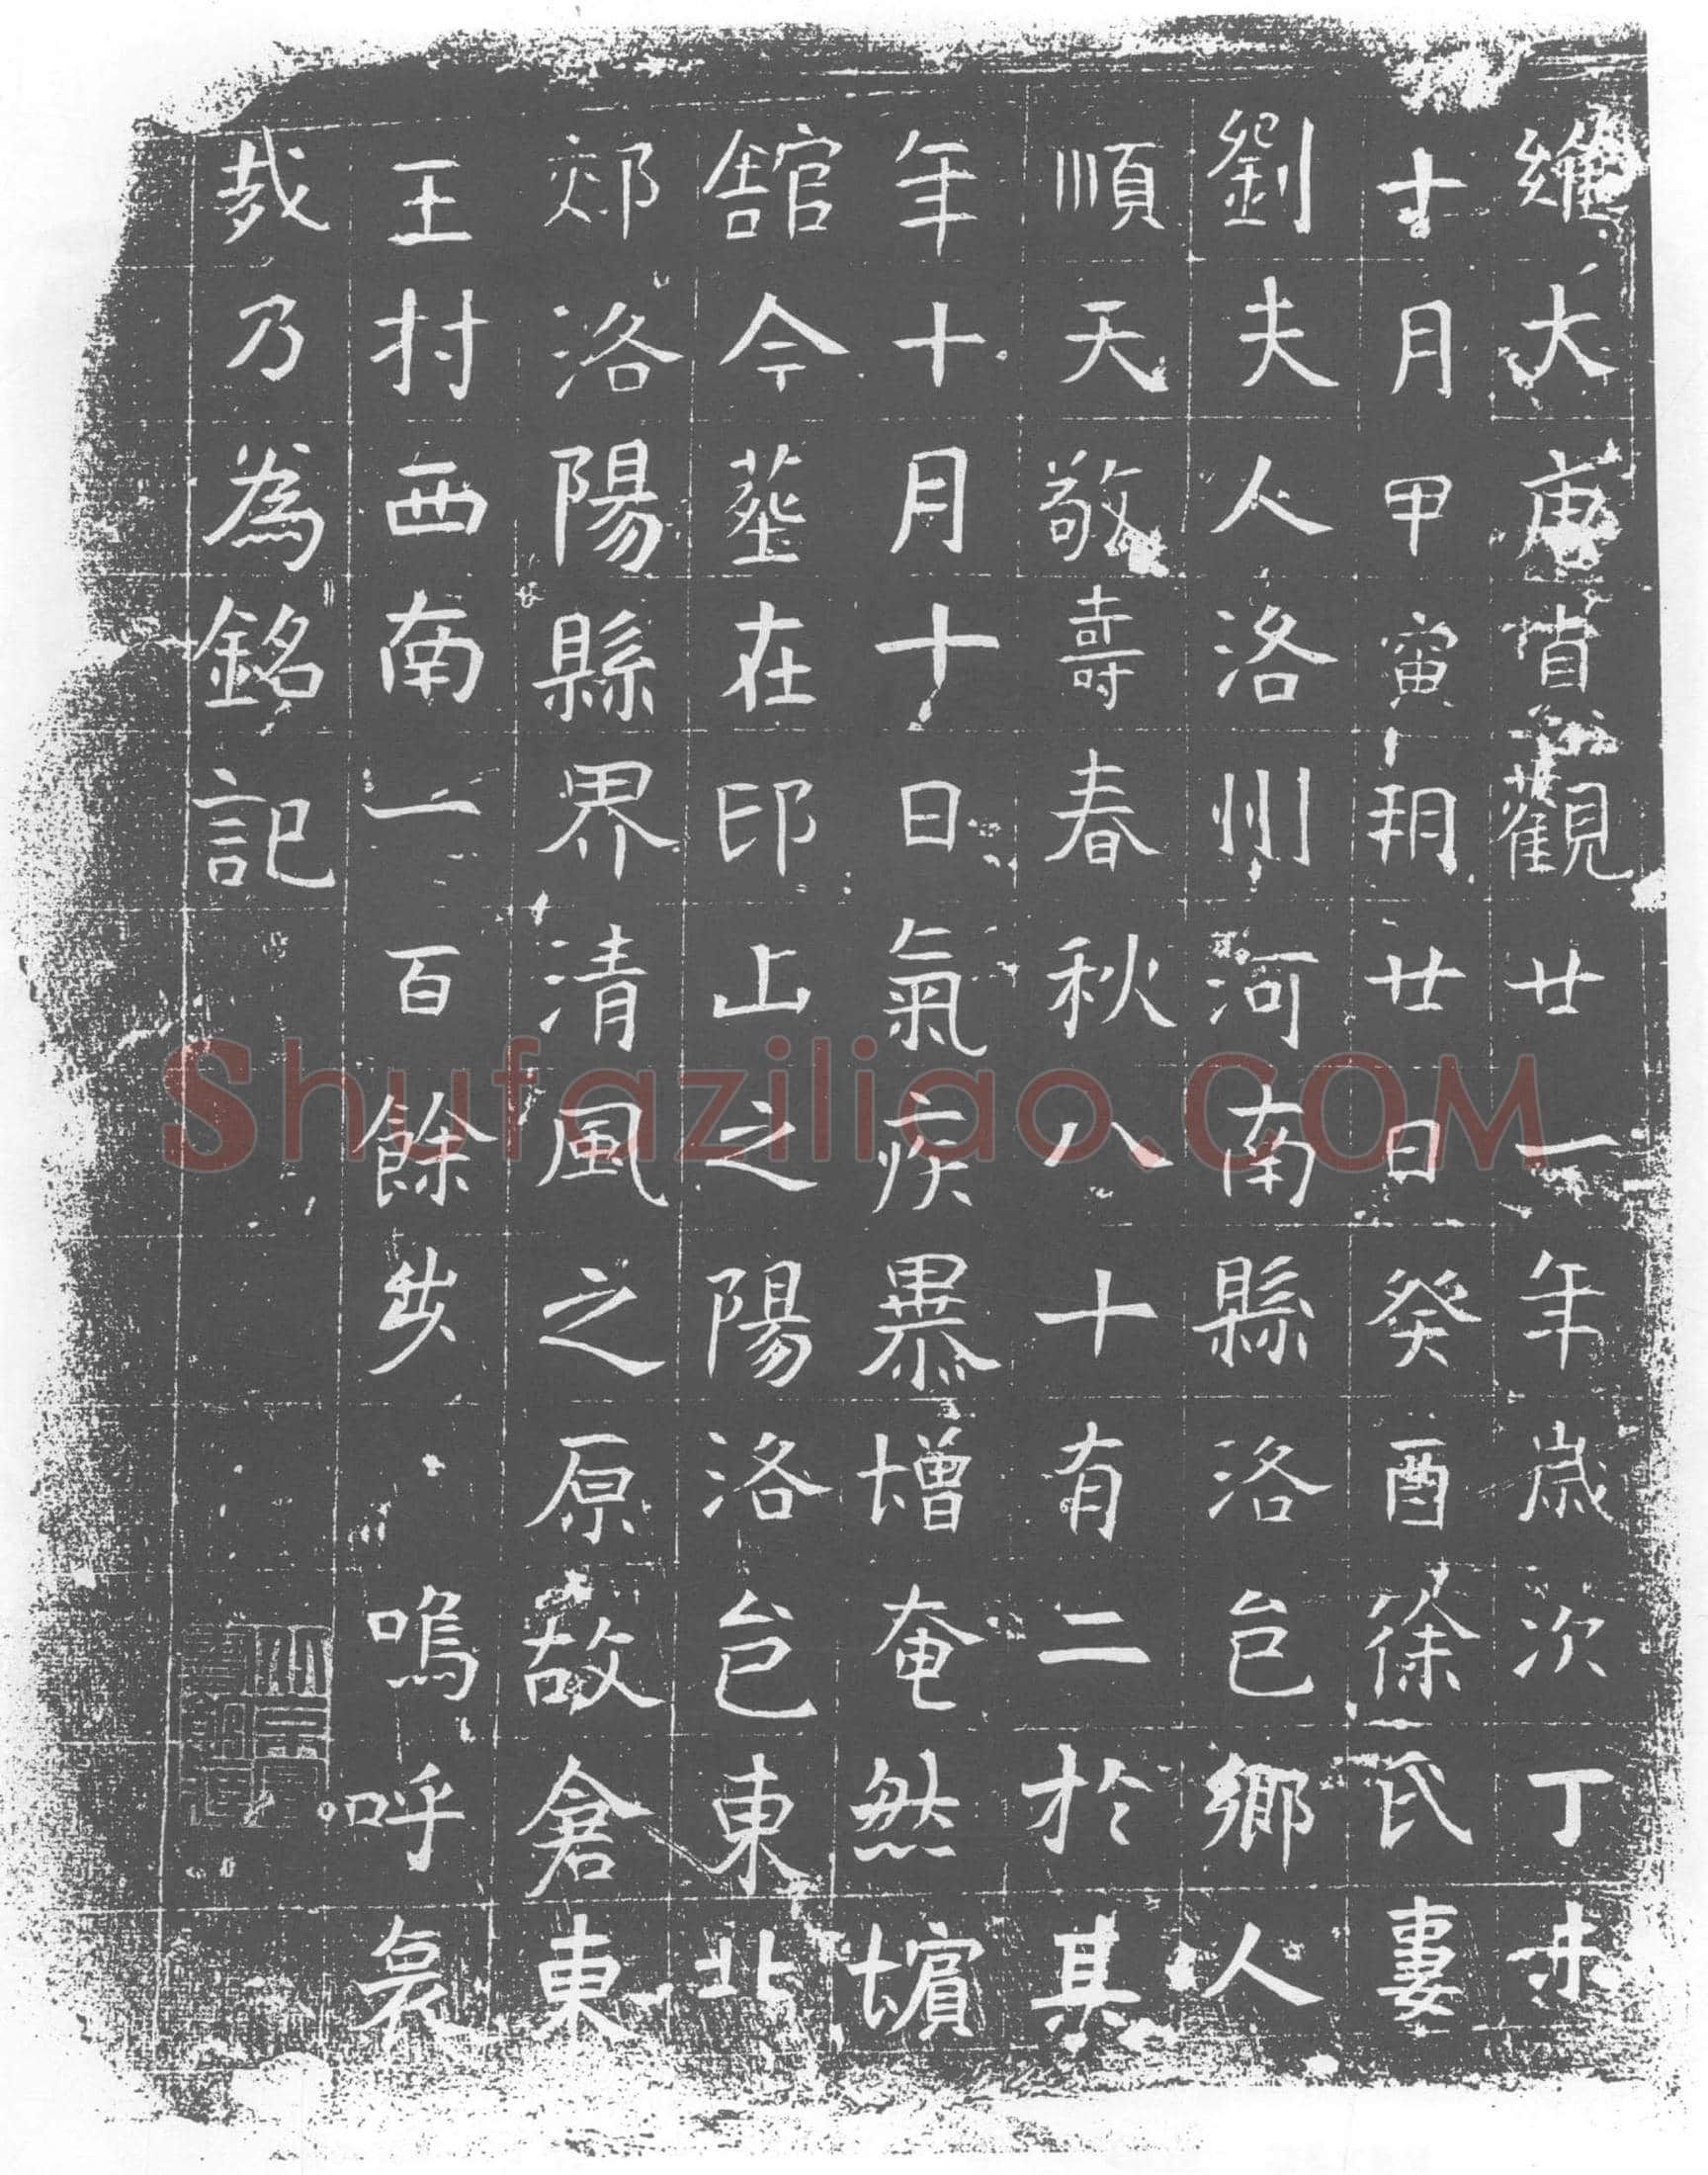 維大唐貞觀廿一年歲次丁未
十月甲寅朔廿日癸酉徐氏婁
劉夫人洛州河南縣洛邑鄉人
順天敬壽春秋八十有二於其
年十月十日氣疾暴增奄然殯
舘今塟在邙山之陽洛邑東北
郊洛陽縣界清風之原故倉東
王村西南一百餘步嗚呼哀
哉乃為銘記
Shufaziliao.COM